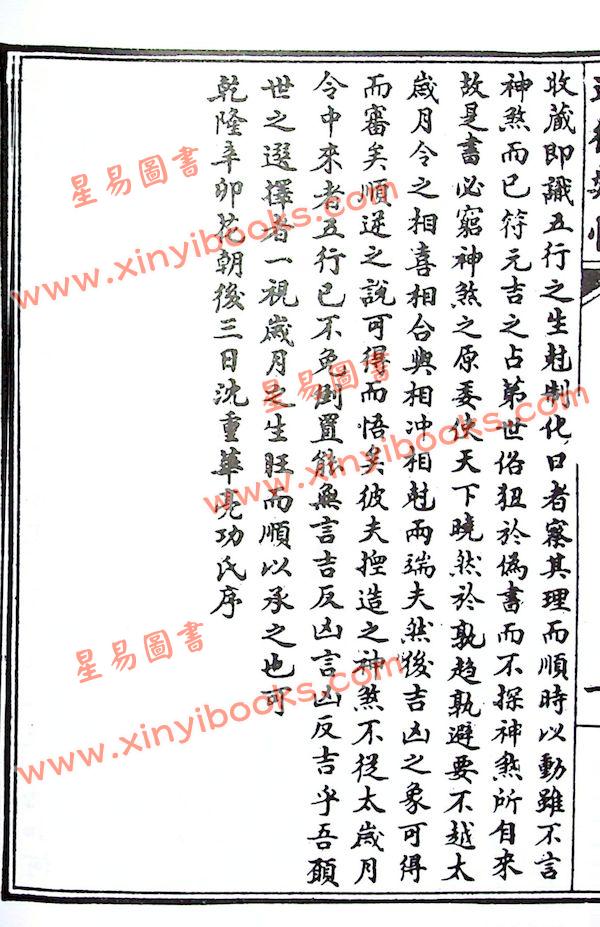 收藏即識五行之生尅制化曰者察其理而順時以動雖不言
神煞而已符元吉之占第世俗狃於偽書而不探神煞所自來
故是書必窮神煞之原委使天下曉然於孰趨孰避要不越太
歲月令之相喜相合與相冲相尅兩端夫然後吉凶之象可得
而審矣順逆之說可得而悟矣彼夫揑造之神煞不從太歲月
令中來者五行已不免倒置能無言吉反凶言凶反吉乎吾願
世之選擇者一視歲月之生旺而順以承之也可
乾隆辛卯花朝後三日沈重華亮功氏序
星易圖書
www.xinyibooks.com
星易圖書
www.xinyibooks.com
星易圖書
www.xinyibooks.com